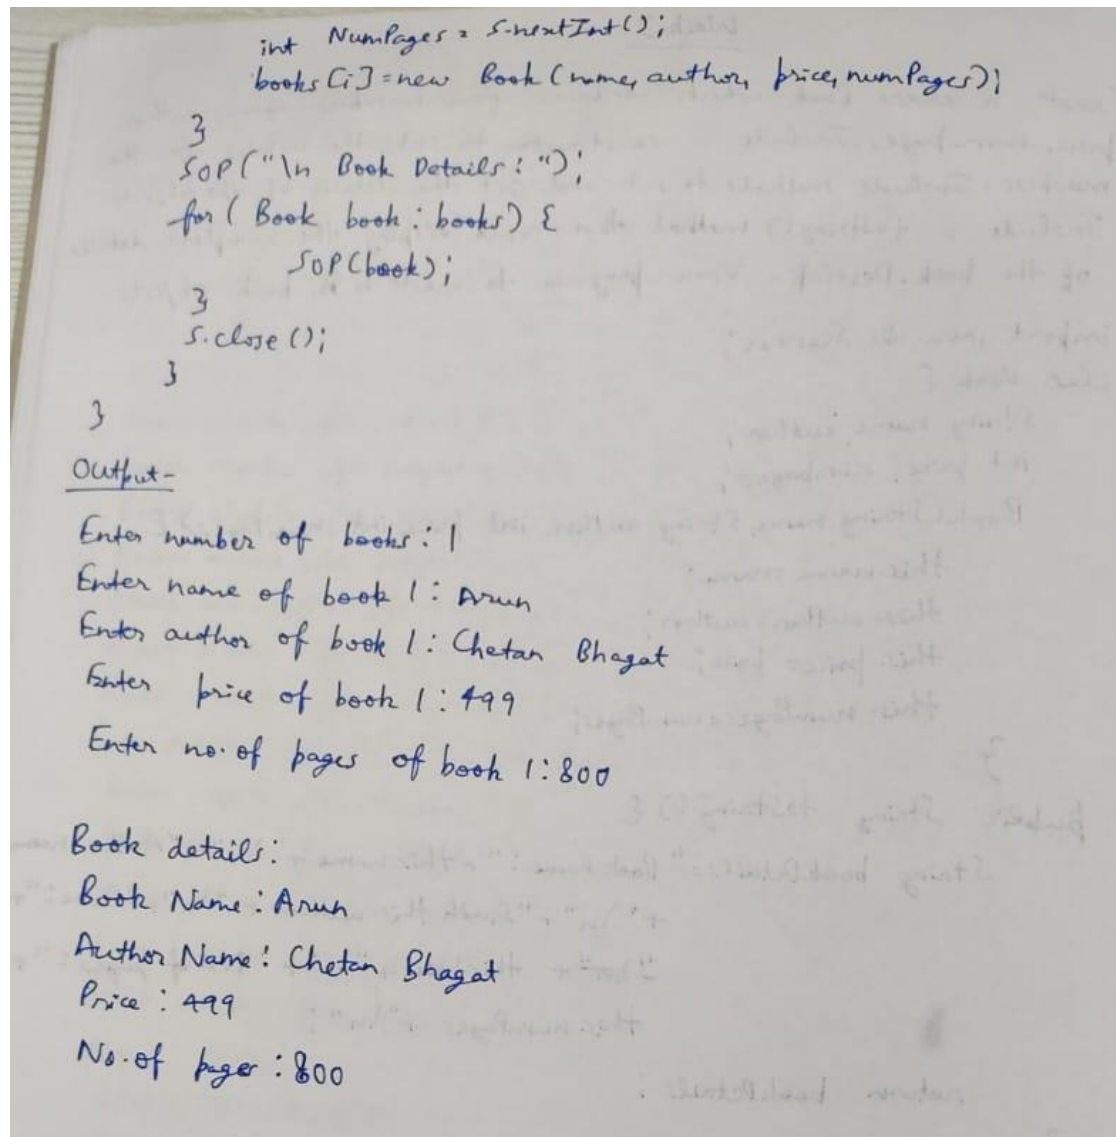 int NumPages = S.nextInt();
books[i]=new Book(name, author, price, numPages);
}
SOP("\n Book Details: ");
for( Book book: books) {
SOP(book);
}
S.close();
}
}
Output-
Enter number of books: 1
Enter name of book 1: Arun
Enter author of book 1: Chetan Bhagat
Enter price of book 1: 499
Enter no. of pages of book 1: 800
Book details:
Book Name: Arun
Author Name: Chetan Bhagat
Price: 499
No. of pages: 800